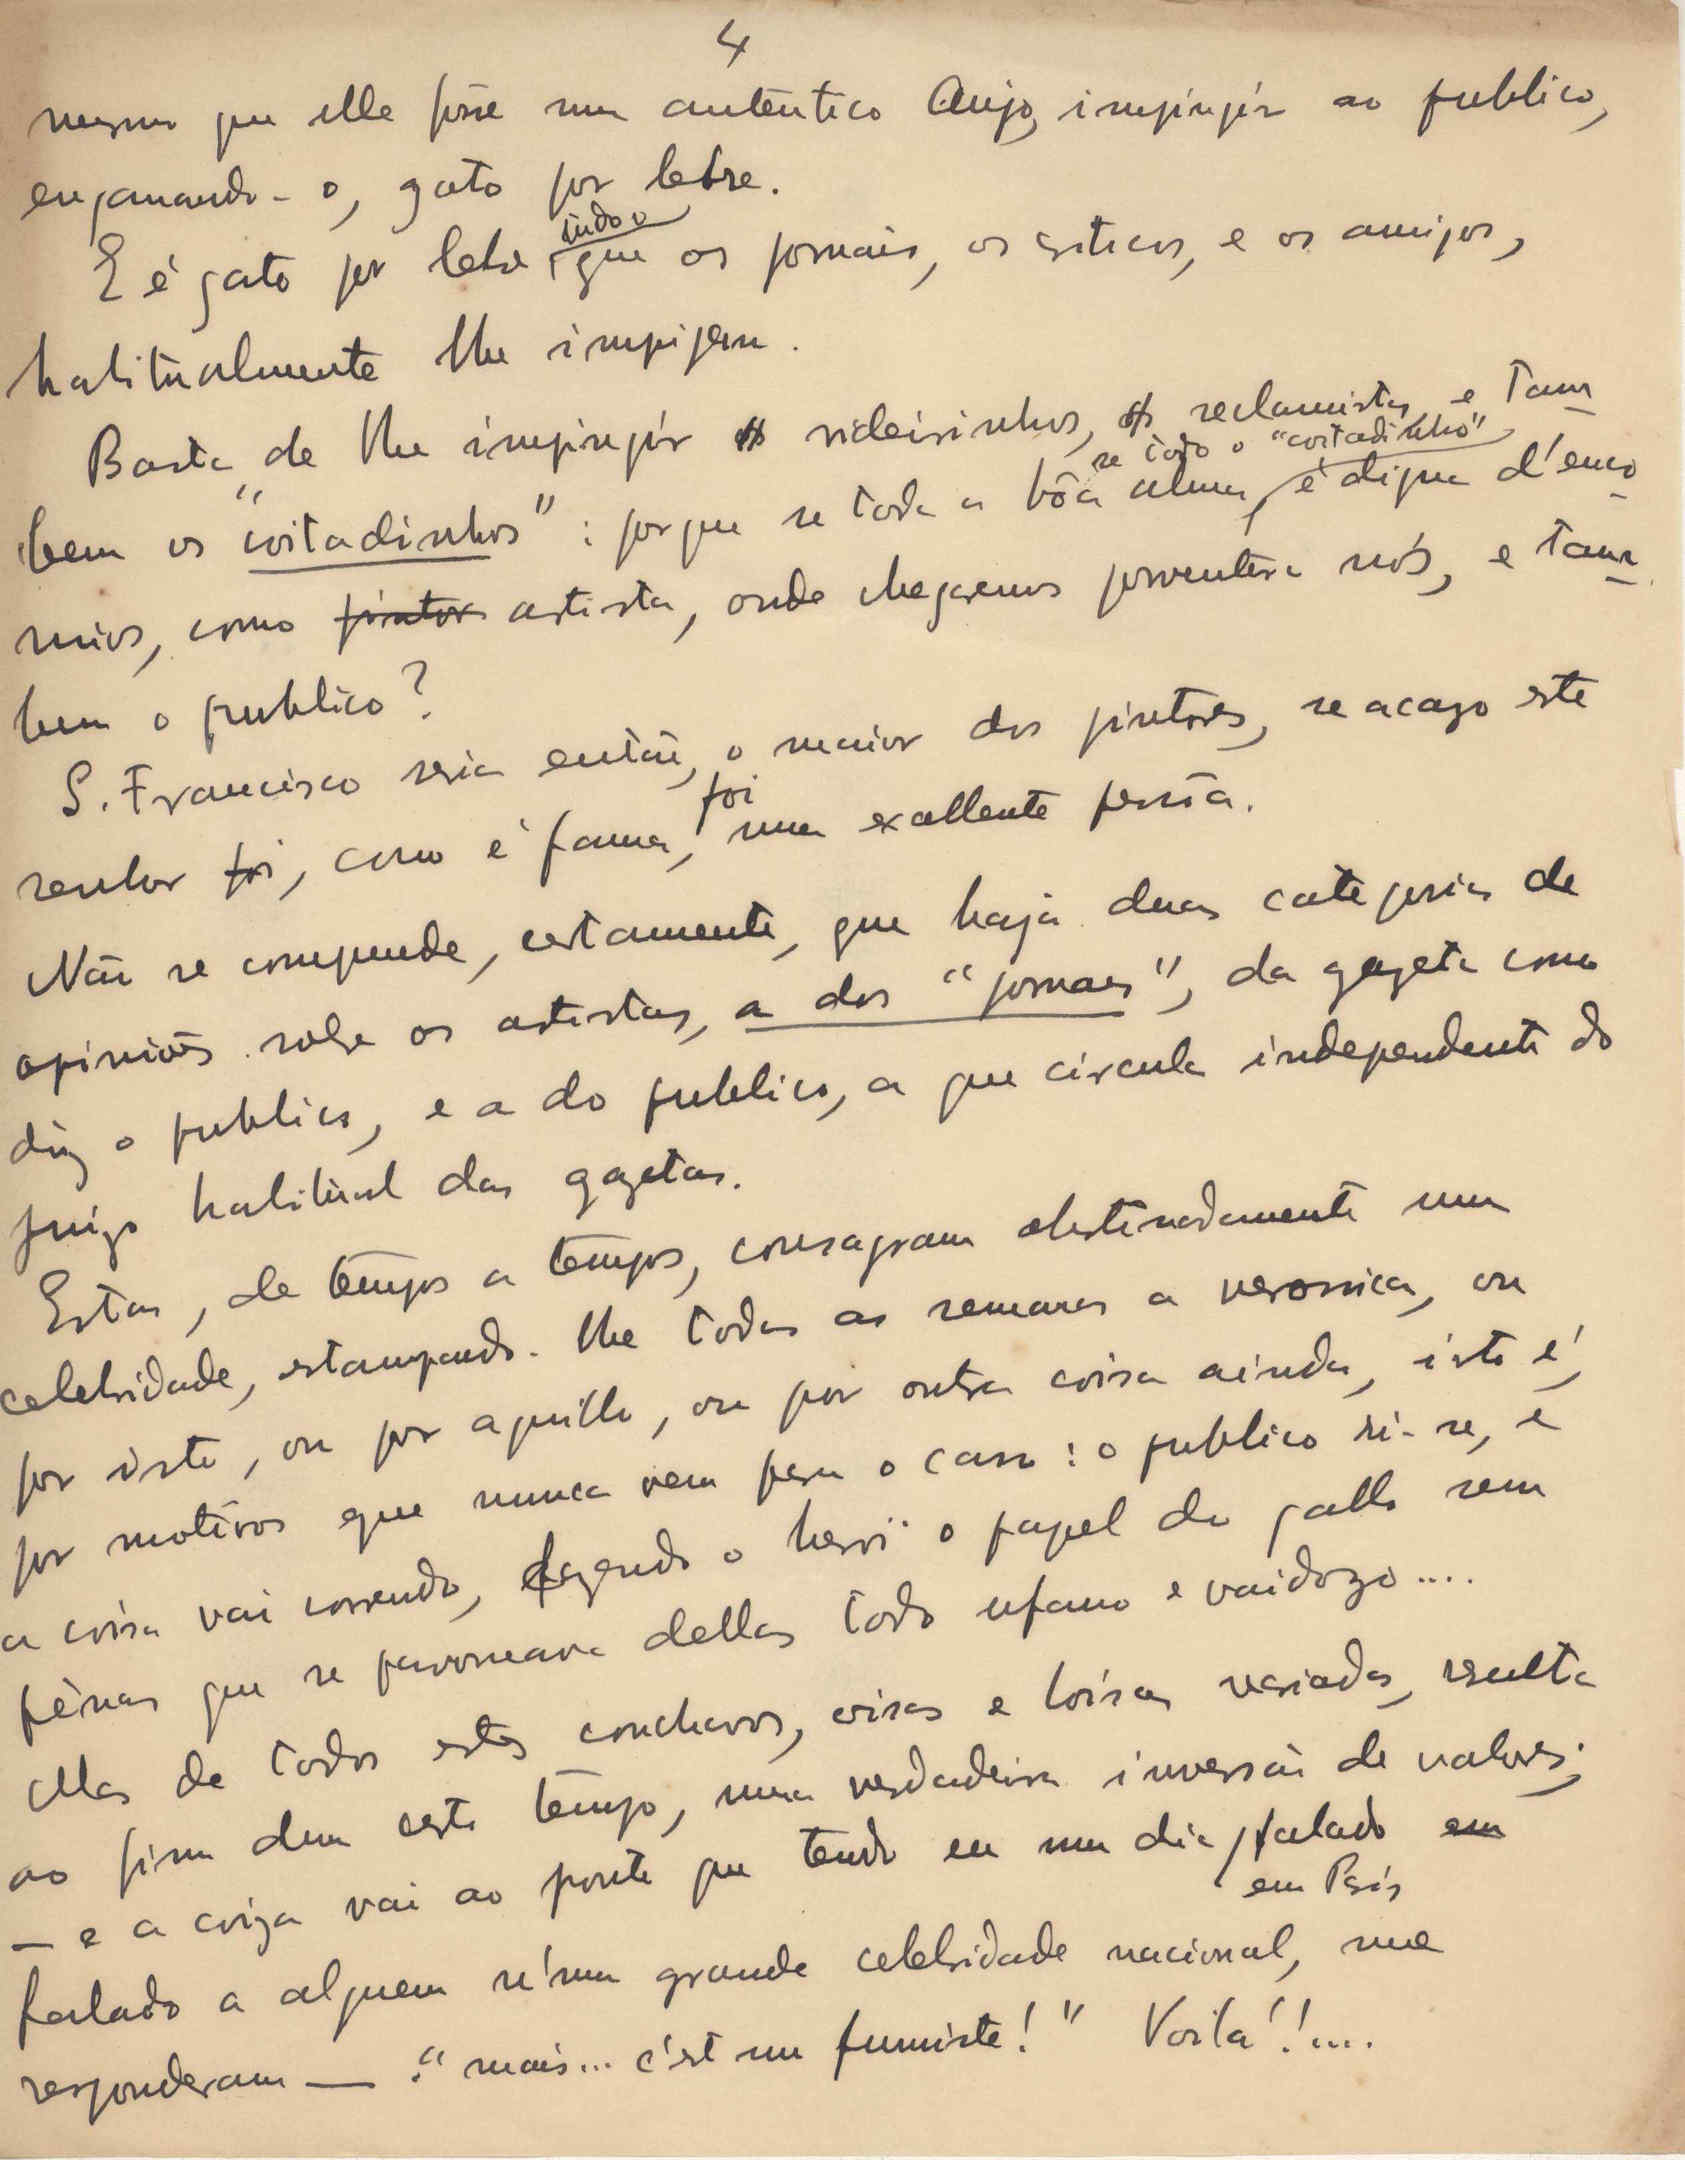 4
mesmo que elle fôsse um autêntico Anjo, impingir ao publico,
enganando-o, gato por lebre.
E é gato por lebre tudo o que os jornais, os criticos, e os amigos,
habitualmente lhe impigem.
Basta de lhe impingir os videirinhos, os reclamistas, e tam-
bem os "coitadinhos": porque se toda a bôa alma, se todo o "coitadinho", é digna d'enco-
mios, como pintor artista, onde chegaremos porventura nós, e tam-
bem o publico?
S. Francisco seria então, o maior dos pintores, se acazo este
senhor foi, como é fama, foi uma excellente pessôa.
Não se comprende, certamente, que haja duas categorias de
opiniões sobre os artistas, a dos "jornaes", da gazeta como
diz o publico, e a do publico, a que circula independente do
juizo habitual das gazetas.
Estas, de tempos a tempos, consagram obstinadamente uma
celebridade, estampando-lhe todas as semanas a veronica, ou
por isto, ou por aquillo, ou por outra coisa ainda, isto é,
por motivos que nunca vem para o caso: o publico ri-se, e
a coisa vai correndo, fazendo o heroi o papel do gallo sem
pênas que se pavoneava dellas todo ufano e vaidozo....
Mas de todos estes conchavos, coisas e loisas variadas, resulta
ao fim dum certo tempo, uma verdadeira inversão de valores;
— e a coiza vai ao ponto que tendo eu um dia, falado em
em Paris
falado a alguem n'uma grande celebridade nacional, me
responderam — : "mais... c'est un fumiste!" Voila!!....